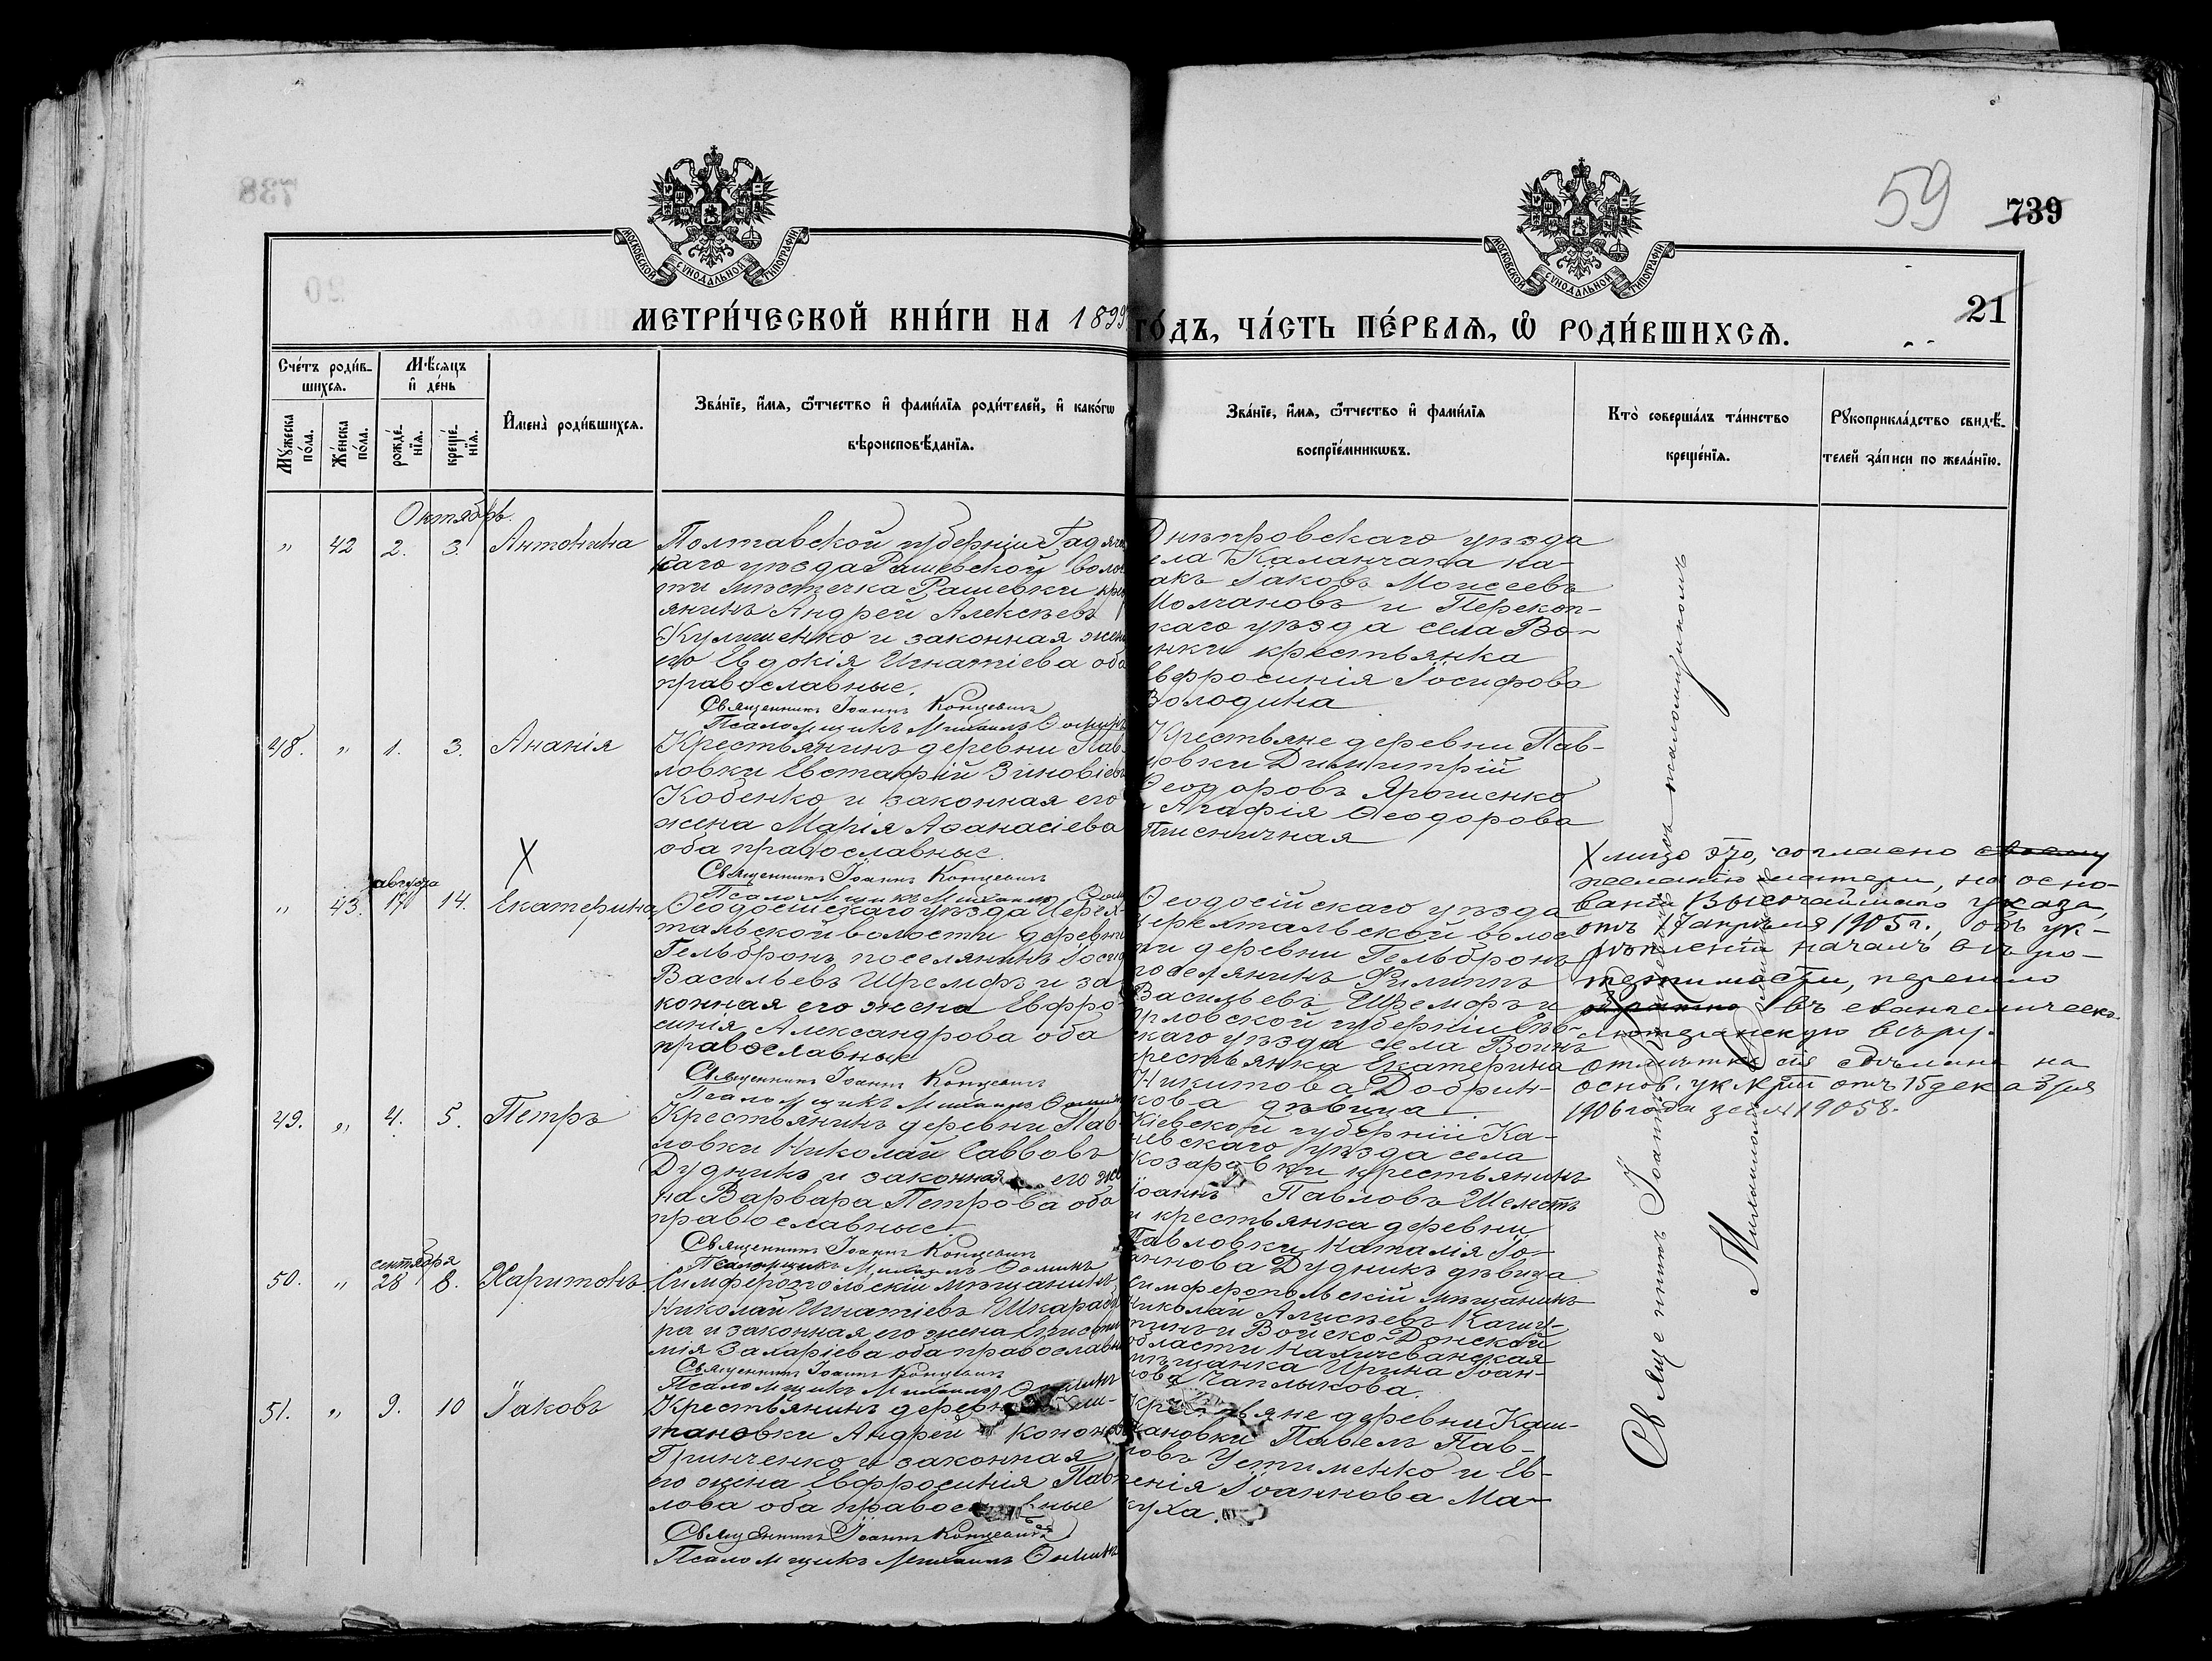 59
739
21
МОСКОВСКОЙ СѴНОДАЛЬНОЙ ТИПОГРАФІИ
МОСКОВСКОЙ СѴНОДАЛЬНОЙ ТИПОГРАФІИ
МЕТРИ́ЧЕСКОЙ КНИ́ГИ НА 1899
ГО́ДЪ, ЧА́СТЬ ПЕ́РВАѦ, Ѡ҆ РОДИ́ВШИХСѦ.
Сче́тъ роди́в-
шихсѧ.
Мꙋжеска по́ла.
Же́нска по́ла.
Мѣ́сѧцъ
и҆ де́нь
рожде́-
нїѧ.
креще́-
нїѧ.
И҆мена̀ роди́вшихсѧ.
Зва́нїе, и҆́мѧ, ѻ҆́тчество и҆ фами́лїѧ роди́телей, и҆ како́гѡ
вѣроисповѣ́данїѧ.
Зва́нїе, и҆́мѧ, ѻ҆́тчество и҆ фами́лїѧ
воспрїе́мникѡвъ.
Кто̀ соверша́лъ та́инство
креще́нїѧ.
Рꙋкоприкла́дство свидѣ́-
телей за́писи по жела́нїю.
Октябрь.
" 42 2. 3. Антонина
Полтавской губерніи Гадяч
каго уѣзда Рашевской воло
ти мѣстечка Рашевки кре
янинъ Андрей Алексѣевъ
Кулишенко и законная жен
его Евдокія Игнатіева оба
православные.
Священникъ Іоаннъ Концевичъ
Псаломщикъ Михаилъ Ѳомин
Днѣпровскаго уѣзда
ела Каланчака ка-
акъ Іаковъ Моисеевъ
Молчановъ и Перекоп-
каго уѣзда села Во-
инки крестьянка
Евфросинія Іосифова
Володина
48. " 1. 3. Ананія
Крестьянинъ деревни Пав-
ловки Евстафій Зиновіевъ
Кобенко и законная его
жена Марія Аѳанасіева
оба православные.
Священникъ Іоаннъ Концевичъ
Псаломщикъ Михаилъ Ѳомин
Крестьяне деревни Пав-
ловки Димитрій
Ѳеодоровъ Ярошенко
и Агафія Ѳеодорова
Пшеничная
X
августа
" 43. 17 14. Екатерина
Ѳеодосійскаго уѣзда Цюрих-
тальской волости деревни
Гельбронъ поселянинъ Іосиф
Васильевъ Шремфъ и за
конная его жена Евфро-
синія Александрова оба
православные
Священникъ Іоаннъ Концевичъ
Псаломщикъ Михаилъ Ѳомин
Ѳеодосійскаго уѣзда
волос
ти деревни Гельбронъ
поселянинъ Филиппъ
Васильевъ Шремфъ и
Орловской губерніи Сѣв-
каго уѣзда села Воинъ
крестьянка Екатерина
Никитова Добрин-
кова дѣвица.
X лицо это, согласно своему
желанію матери, на осно-
ваніи Высочайшаго указа,
отъ 17 апрѣля 1905 г., объ ук-
рѣпленіи началъ вѣро-
терпимости, перешло
обратно въ евангелическо-
лютеранскую вѣру.
отмѣтка сія сдѣлана на
основ. ук. отъ 15 декабря
1906 года за № 19058.
49. " 4. 5. Петръ
Крестьянинъ деревни Пав-
ловки Николай Саввовъ
Дудникъ и законная его же
на Варвара Петрова оба
православные.
Священникъ Іоаннъ Концевичъ
Псаломщикъ Михаилъ Ѳоминъ
Кіевской губерніи Ка-
невскаго уѣзда села
Козаровки крестьянинъ
Іоаннъ Павловъ Шелестъ
и крестьянка деревни
Павловки Наталія Іо-
аннова Дудникъ дѣвица
сентября
50. " 28 8. Харитонъ
Симферопольскій мѣщанинъ
Николай Игнатіевъ Шкараб
ра и законная его жена Еписти
мія Захаріева оба православн
Священникъ Іоаннъ Концевичъ
Псаломщикъ Михаилъ Ѳоминъ
Симферопольскій мѣщанинъ
Николай
тинъ и Войско-Донской
области Нахичеванская
мѣщанка Ирина Іоан-
нова Чаплыкова.
51. " 9. 10 Іаковъ
Крестьянинъ дерев
тановки Андрей Конон
Гринченко и законная
его жена Евфросинія Пав-
лова оба правос ные
Священникъ Іоаннъ Концевичъ
Псаломщикъ Михаилъ Ѳоминъ
Крестьяне деревни Каш-
тановки Павелъ Пав-
ловъ Устименко и Ев-
генія Іоаннова Ма-
куха.
Священникъ Іоаннъ съ псаломщикомъ